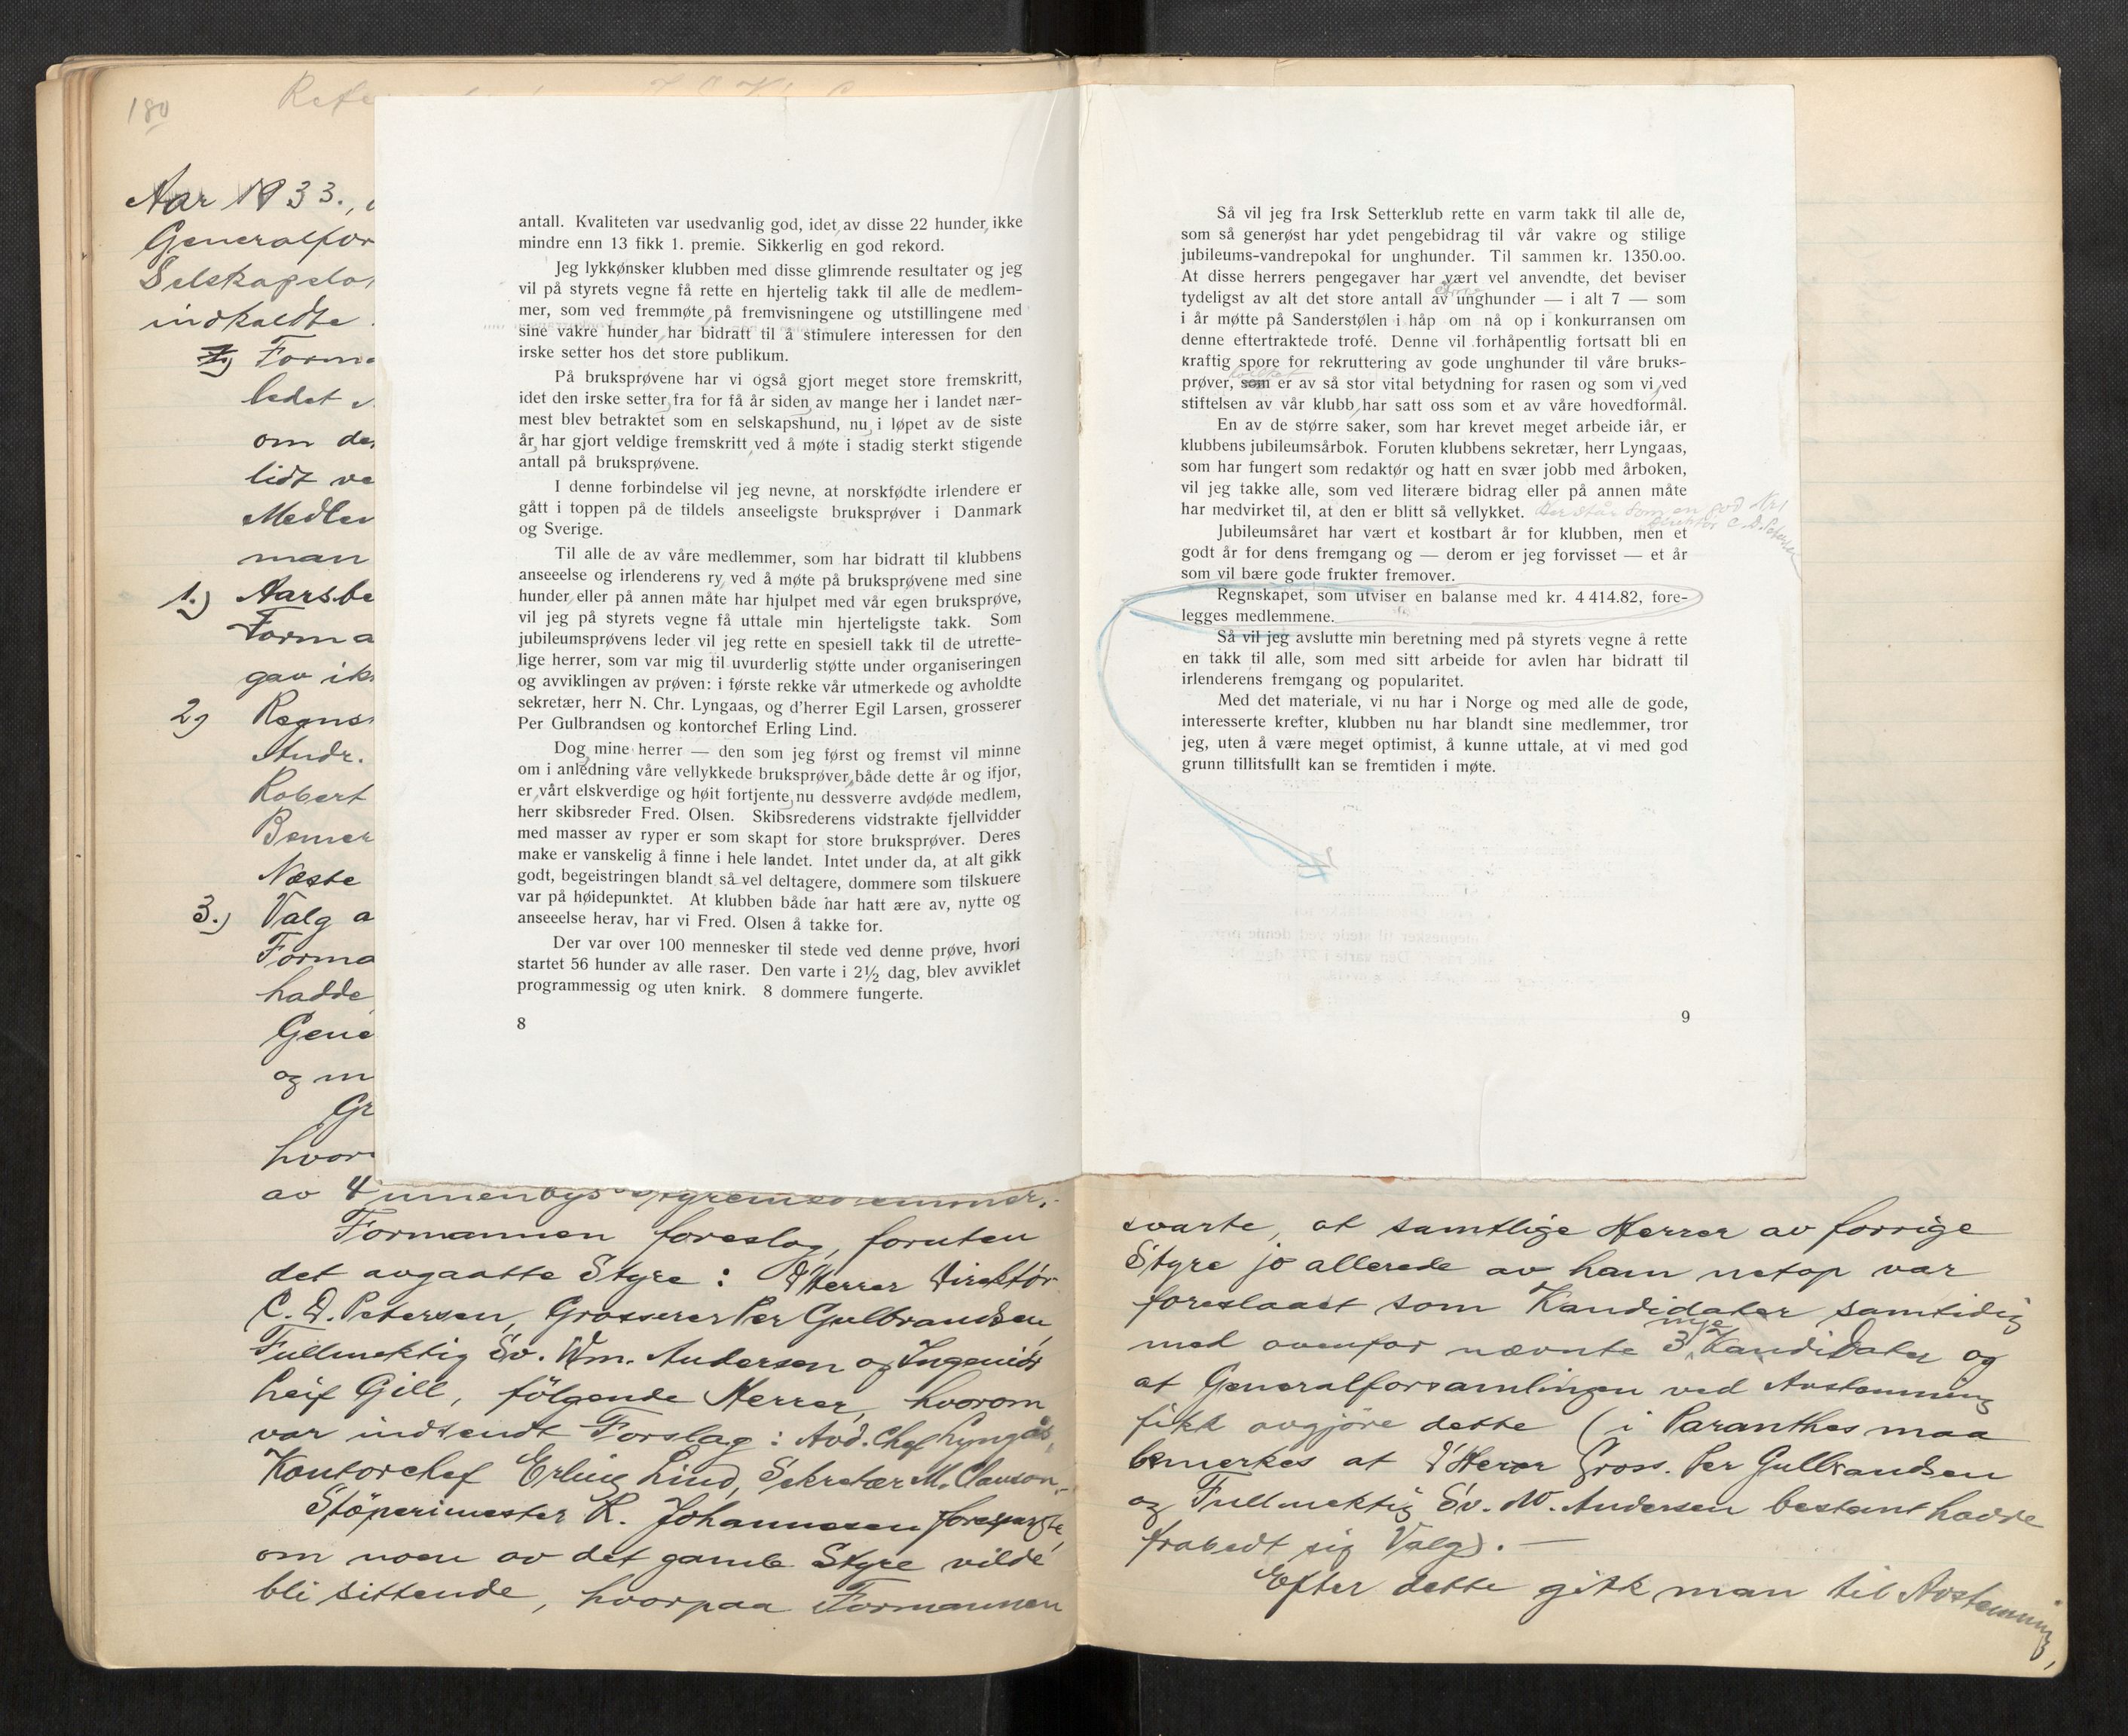 180
Aar 1933.,
Generalfor
Selskapslo
indkaldte
Forma
ledet
om de
lidt ve
Medlem
man
1.) Aarsbe
Forma
gav ik
2) Regns
Andr.
Robert
Bemer
Næste
3.) Valg a
Forma
hadde
Gene
og m
Gr
hvor
av 4
Formannen foreslog, foruten
det avgaatte Styre: d'Herrer Direktör
C. D. Petersen, Grosserer Per Gulbrandsen,
Fullmektig Sv. Wm. Andersen og Ingeniör
Leif Gill, fölgende Herrer, hvorom
var indsendt Forslag: Avd. Chef Lyngås,
Kontorchef Erling Lind, Sekretær M. Clauson.-
Stöperimester R. Johannesen forespurgte,
om noen av det gamle Styre vilde
bli sittende, hvorpaa Formannen
antall. Kvaliteten var usedvanlig god, idet av disse 22 hunder, ikke
mindre enn 13 fikk 1. premie. Sikkerlig en god rekord.
Jeg lykkønsker klubben med disse glimrende resultater og jeg
vil på styrets vegne få rette en hjertelig takk til alle de medlem-
mer, som ved fremmøte på fremvisningene og utstillingene med
sine vakre hunder, har bidratt til å stimulere interessen for den
irske setter hos det store publikum.
På bruksprøvene har vi også gjort meget store fremskritt,
idet den irske setter, fra for få år siden, av mange her i landet nær-
mest blev betraktet som en selskapshund, nu, i løpet av de siste
år, har gjort veldige fremskritt, ved å møte i stadig sterkt stigende
antall på bruksprøvene.
I denne forbindelse vil jeg nevne, at norskfødte irlendere er
gått i toppen på de tildels anseeligste bruksprøver i Danmark
og Sverige.
Til alle de av våre medlemmer, som har bidratt til klubbens
anseelse og irlenderens ry, ved å møte på bruksprøvene med sine
hunder, eller på annen måte har hjulpet med vår egen bruksprøve,
vil jeg på styrets vegne få uttale min hjerteligste takk. Som
jubileumsprøvens leder vil jeg rette en spesiell takk til de utrette-
lige herrer, som var mig til uvurderlig støtte under organiseringen
og avviklingen av prøven: i første rekke vår utmerkede og avholdte
sekretær, herr N. Chr. Lyngaas, og d'herrer Egil Larsen, grosserer
Per Gulbrandsen og kontorchef Erling Lind.
Dog, mine herrer — den som jeg først og fremst vil minne
om i anledning våre vellykkede bruksprøver, både dette år og ifjor,
er, vårt elskverdige og høit fortjente, nu dessverre avdøde medlem,
herr skibsreder Fred. Olsen. Skibsrederens vidstrakte fjellvidder
med masser av ryper er som skapt for store bruksprøver. Deres
make er vanskelig å finne i hele landet. Intet under da, at alt gikk
godt, begeistringen blandt så vel deltagere, dommere som tilskuere
var på høidepunktet. At klubben både har hatt ære av, nytte og
anseeelse herav, har vi Fred. Olsen å takke for.
Der var over 100 mennesker til stede ved denne prøve, hvori
startet 56 hunder av alle raser. Den varte i 2½ dag, blev avviklet
programmessig og uten knirk. 8 dommere fungerte.
8
Så vil jeg fra Irsk Setterklub rette en varm takk til alle de,
som så generøst har ydet pengebidrag til vår vakre og stilige
jubileums-vandrepokal for unghunder. Til sammen kr. 1350.oo.
At disse herrers pengegaver har vært vel anvendte, det beviser
tydeligst av alt det store antall av unghunder — i alt 7 — som
i år møtte på Sanderstølen i håp om nå op i konkurransen om
denne eftertraktede trofé. Denne vil forhåpentlig fortsatt bli en
kraftig spore for rekruttering av gode unghunder til våre bruks-
hvilket
prøver, som er av så stor vital betydning for rasen og som vi, ved
stiftelsen av vår klubb, har satt oss som et av våre hovedformål.
En av de større saker, som har krevet meget arbeide iår, er
klubbens jubileumsårbok. Foruten klubbens sekretær, herr Lyngaas,
som har fungert som redaktør og hatt en svær jobb med årboken,
vil jeg takke alle, som ved literære bidrag eller på annen måte
har medvirket til, at den er blitt så vellykket. Her står som en god Nr 1
direktør C. D. Petersen
Jubileumsåret har vært et kostbart år for klubben, men et
godt år for dens fremgang og — derom er jeg forvisset — et år
som vil bære gode frukter fremover.
Regnskapet, som utviser en balanse med kr. 4 414.82, fore-
legges medlemmene.
Så vil jeg avslutte min beretning med på styrets vegne å rette
en takk til alle, som med sitt arbeide for avlen har bidratt til
irlenderens fremgang og popularitet.
Med det materiale, vi nu har i Norge og med alle de gode,
interesserte krefter, klubben nu har blandt sine medlemmer, tror
jeg, uten å være meget optimist, å kunne uttale, at vi med god
grunn tillitsfullt kan se fremtiden i møte.
9
svarte, at samtlige Herrer av forrige
Styre jo allerede av ham netop var
foreslaaet som Kandidater samtidig
med ovenfor nævnte 3 nye Kandidater og
at Generalforsamlingen ved Avstemning
fikk avgjöre dette (i Paranthes maa
bemerkes at d'Herrer Gross. Per Gulbrandsen
og Fullmektig Sv. W. Andersen bestemt hadde
frabedt sig Valg). —
Efter dette gikk man til Avstemning,